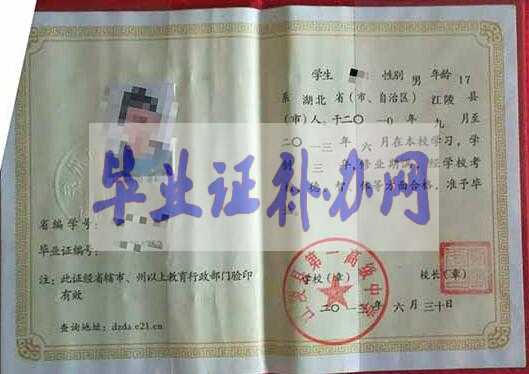 学生 性别 男 年龄 17
系 湖北 省(市、自治区) 江陵 县
(市)人,于二〇一〇年 九 月至
二〇一三年 六 月在本校学习,学
三 年,修业期满,经学校考
体等方面合格,准予毕
毕业证补办网
省编学号:
毕业证编号:
注:此证经省辖市、州以上教育行政部门验印
有效
查询地址:dzda.e21.cn
学校(章) 校长(章)
第一高级中学
二〇一三年 六 月 三十日